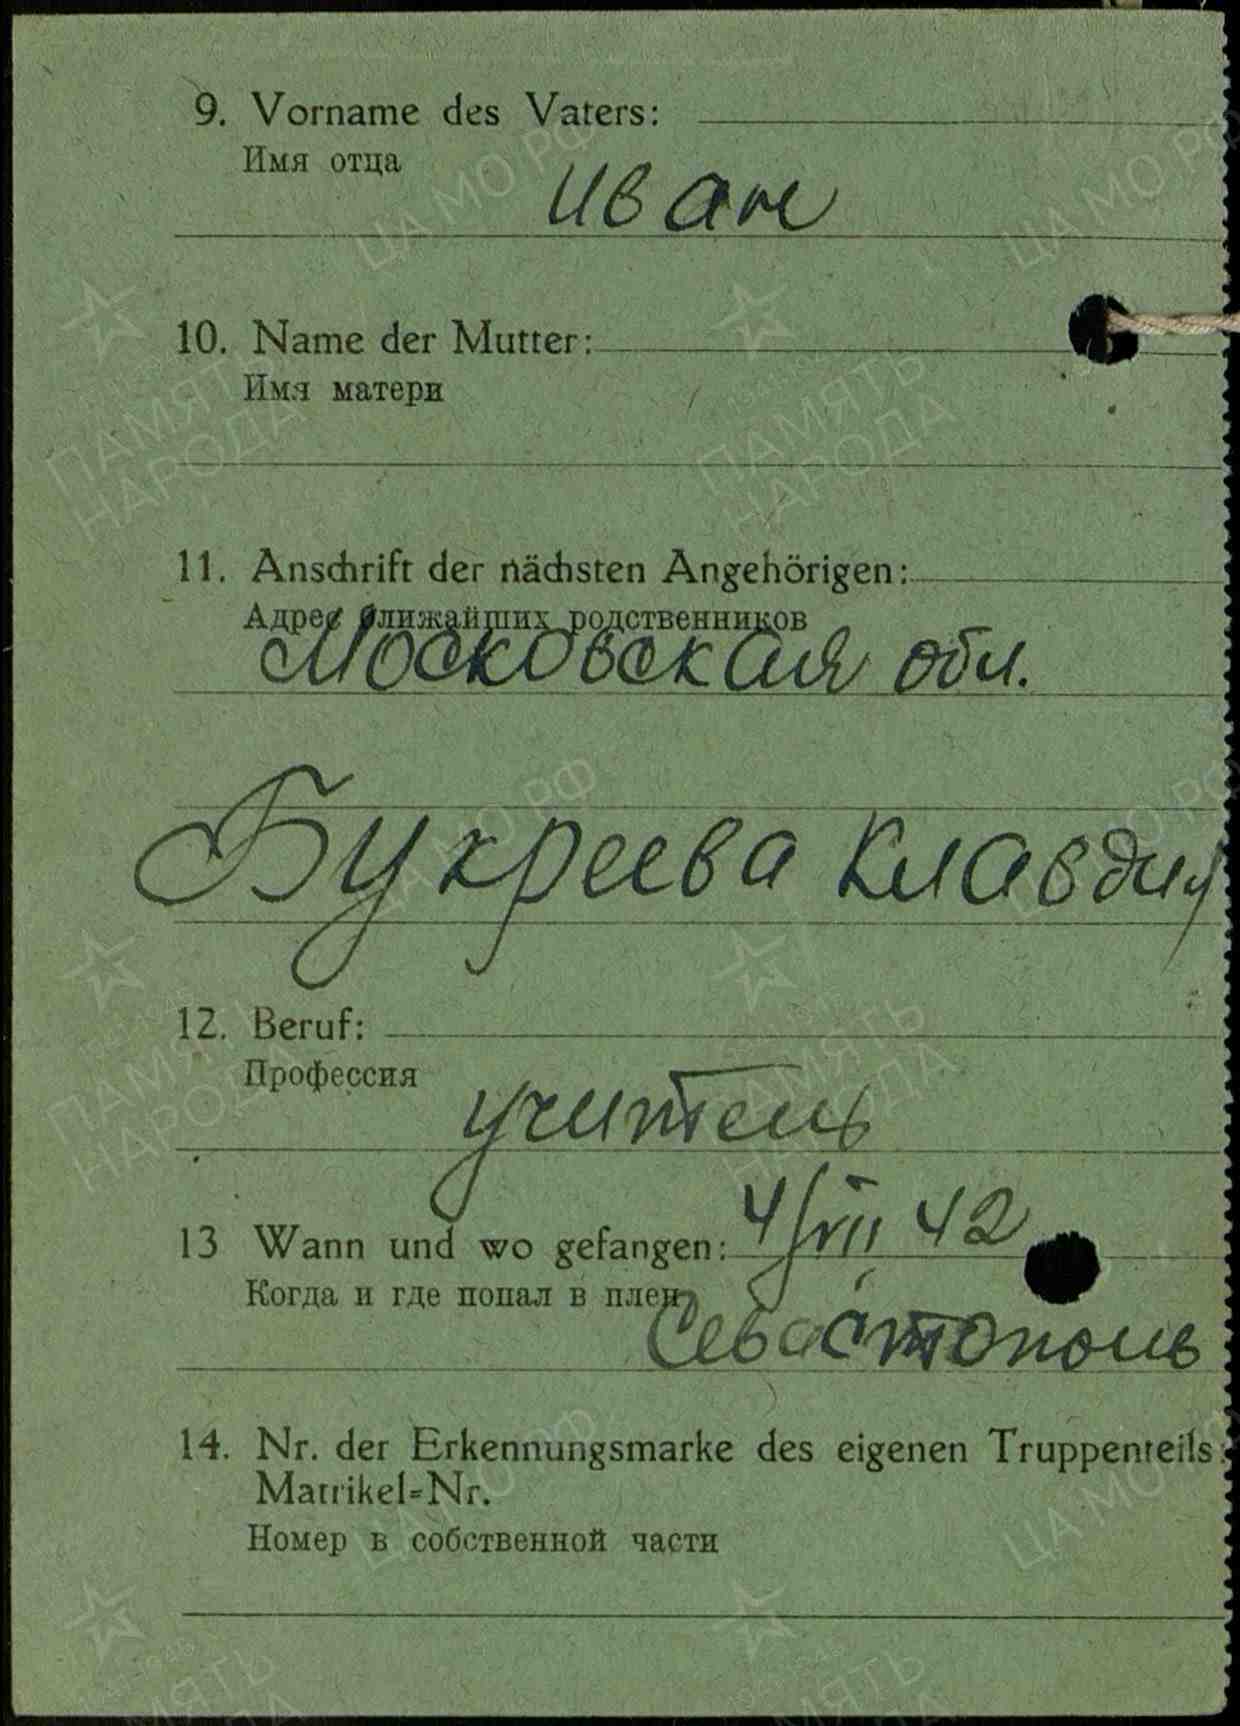 9. Vorname des Vaters:
Имя отца
Иван
10. Name der Mutter:
Имя матери
11. Anschrift der nächsten Angehörigen:
Адрес ближайших родственников
Московская обл.
Букреева Клавдия
12. Beruf:
Профессия
учитель
13 Wann und wo gefangen: 4/VII 42
Когда и где попал в плен
Севастополь
14. Nr. der Erkennungsmarke des eigenen Truppenteils:
Matrikel=Nr.
Номер в собственной части
ЦА МО РФ
ПАМЯТЬ
НАРОДА
1941-1945